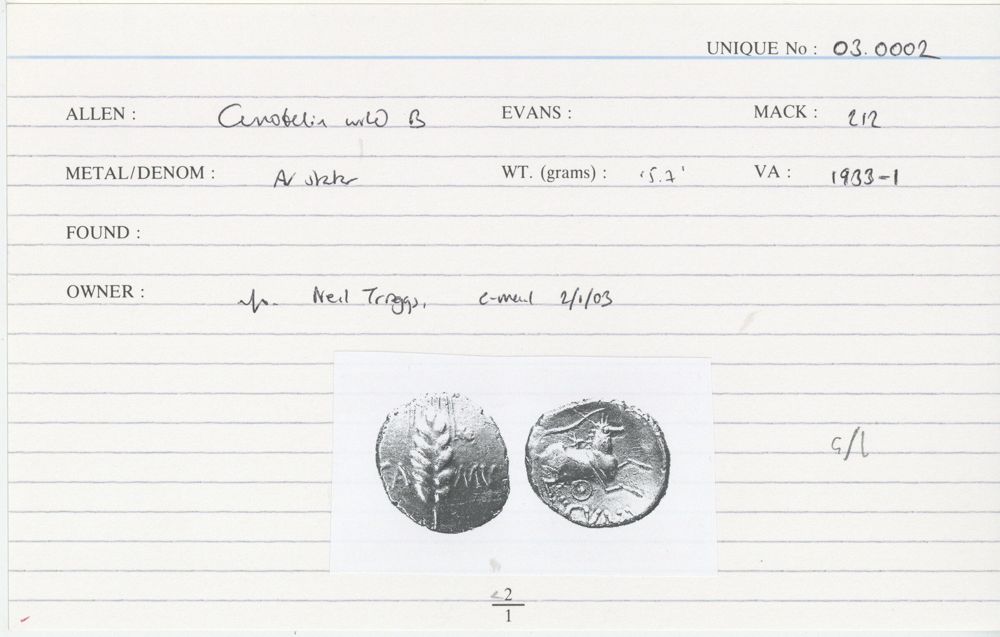 UNIQUE No : 03.0002
ALLEN : Cunobelin wild B EVANS : MACK : 212
METAL/DENOM : AV stater WT. (grams) : '5.7' VA : 1933-1
FOUND :
OWNER : Neil Troggs, e-mail 2/1/03
CA MV
CVN
2
1